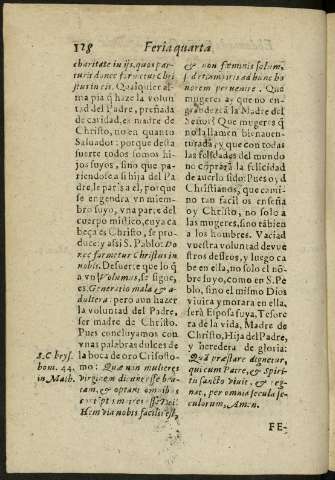 128
Feria quarta
charitate in ijs, quos par-
turit donec formetur Chri
stus in eis. Qualquier al
ma pia q̃ haze la volun
tad del Padre, preñada
de caridad, es madre de
Christo, no en quanto
Saluador: porque desta
suerte todos somos hi-
jos suyos, sino que pa-
riendose a si hija del Pa
dre, le pare a el, porque
se engendra vn miem-
bro suyo, vna parte del
cuerpo mistico, cuya ca
beça es Christo, se pro-
duce: y assi S. Pablo: Do
nec formetur Christus in
nobis. De suerte que lo q̃
a vos Volumus, se sigue,
es, Generatio mala & a-
dultera: pero aun hazer
la voluntad del Padre,
ser madre de Christo.
Pues concluyamos con
vnas palabras dulces de
la boca de oro Crisosto-
mo: Quàm mulieres
Virginem
& optant
Hem via nobis facilis est,
S. Chrys.
hom. 44.
in Math.
& non fœminis solum,
honorem peruenire. Que
mugeres ay que no en-
grandezcã la Madre del
Señor? Que mugeres q̃
no la llamen bienauen-
turada, y que con todas
las felicidades del mundo
no cõprarã la felicidad
de auerlo sido? Pues o, ô
Christianos, que cami-
no tan facil os enseña
oy Christo, no solo a
las mugeres, sino tãbien
a los hombres. Vaciad
vuestra voluntad de vue
stros desseos, y luego ca
be en ella, no solo el nõ-
bre suyo, como en S. Pa
blo, sino el mismo Dios
viuira y morara en ella,
será Esposa suya, Tesore
ra de la vida, Madre de
Christo, Hija del Padre,
y heredera de gloria:
Quã præstare dignetur,
qui cum Patre, & Spiri-
tu sancto viuit, & reg-
nat, per omnia secula se-
culorum, Amen.
FE-